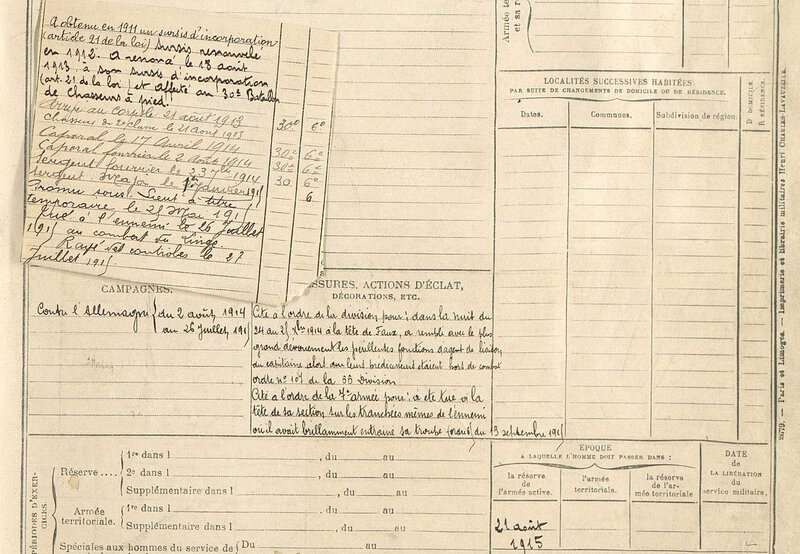 A obtenu en 1911 un sursis d'incorporation
(article 21 de la loi) sursis renouvelé
en 1912. A renoncé le 13 août
1913 à son sursis d'incorporation
(art. 21 de la loi) et affecté au 30e Bataillon
de chasseurs à pied.
Arrivé au corps le 21 août 1913
chasseur de 2e classe le 21 août 1913 30e 6e
Caporal le 17 Avril 1914
Caporal fourrier le 2 Août 1914 30e 6e
Sergent fourrier le 23 1914 30e 6e
Sergent Major le 1er Janvier 191 30 6e
Promu sous Lieut à titre 6
temporaire le 25 Mai 191
Tué à l'ennemi le 26 Juillet
191 au combat du Linge.
Rayé des contrôles le 27
Juillet 191
Armée
et sa r
LOCALITÉS SUCCESSIVES HABITÉES
PAR SUITE DE CHANGEMENTS DE DOMICILE OU DE RÉSIDENCE.
Dates. Communes. Subdivision de région. D DOMICILE
R RÉSIDENCE.
CAMPAGNES.
Contre l'Allemagne du 2 août 1914
au 26 juillet 191
SSURES, ACTIONS D'ÉCLAT,
DÉCORATIONS, ETC.
Cité à l'ordre de la division pour : dans la nuit du
24 au 25 Xbre 1914 à la tête de Faux, a rempli avec le plus
grand dévouement les périlleuses fonctions d'agent de liaison
du capitaine alors que leurs prédécesseurs étaient hors de combat
ordre n° 107 de la 66 Division
Cité à l'ordre de la 7e armée pour : a été tué à la
tête de sa section sur les tranchées mêmes de l'ennemi
où il avait brillamment entrainé sa troupe (ordre du 13 septembre 191
PÉRIODES D'EXERCICES.
Réserve .... 1re dans l , du au
2e dans l , du au
Supplémentaire dans l , du au
Armée
territoriale. 1re dans l , du au
Supplémentaire dans l , du au
Spéciales aux hommes du service de Du au
ÉPOQUE
A LAQUELLE L'HOMME DOIT PASSER DANS :
la réserve
de
l'armée active.
l'armée
territoriale.
la réserve
de l'ar-
mée territoriale
DATE
de
LA LIBÉRATION
du
service militaire.
21 août
1915
2279. — Paris et Limoges. — Imprimerie et librairie militaires Henri CHARLES-LAVAUZELLE.